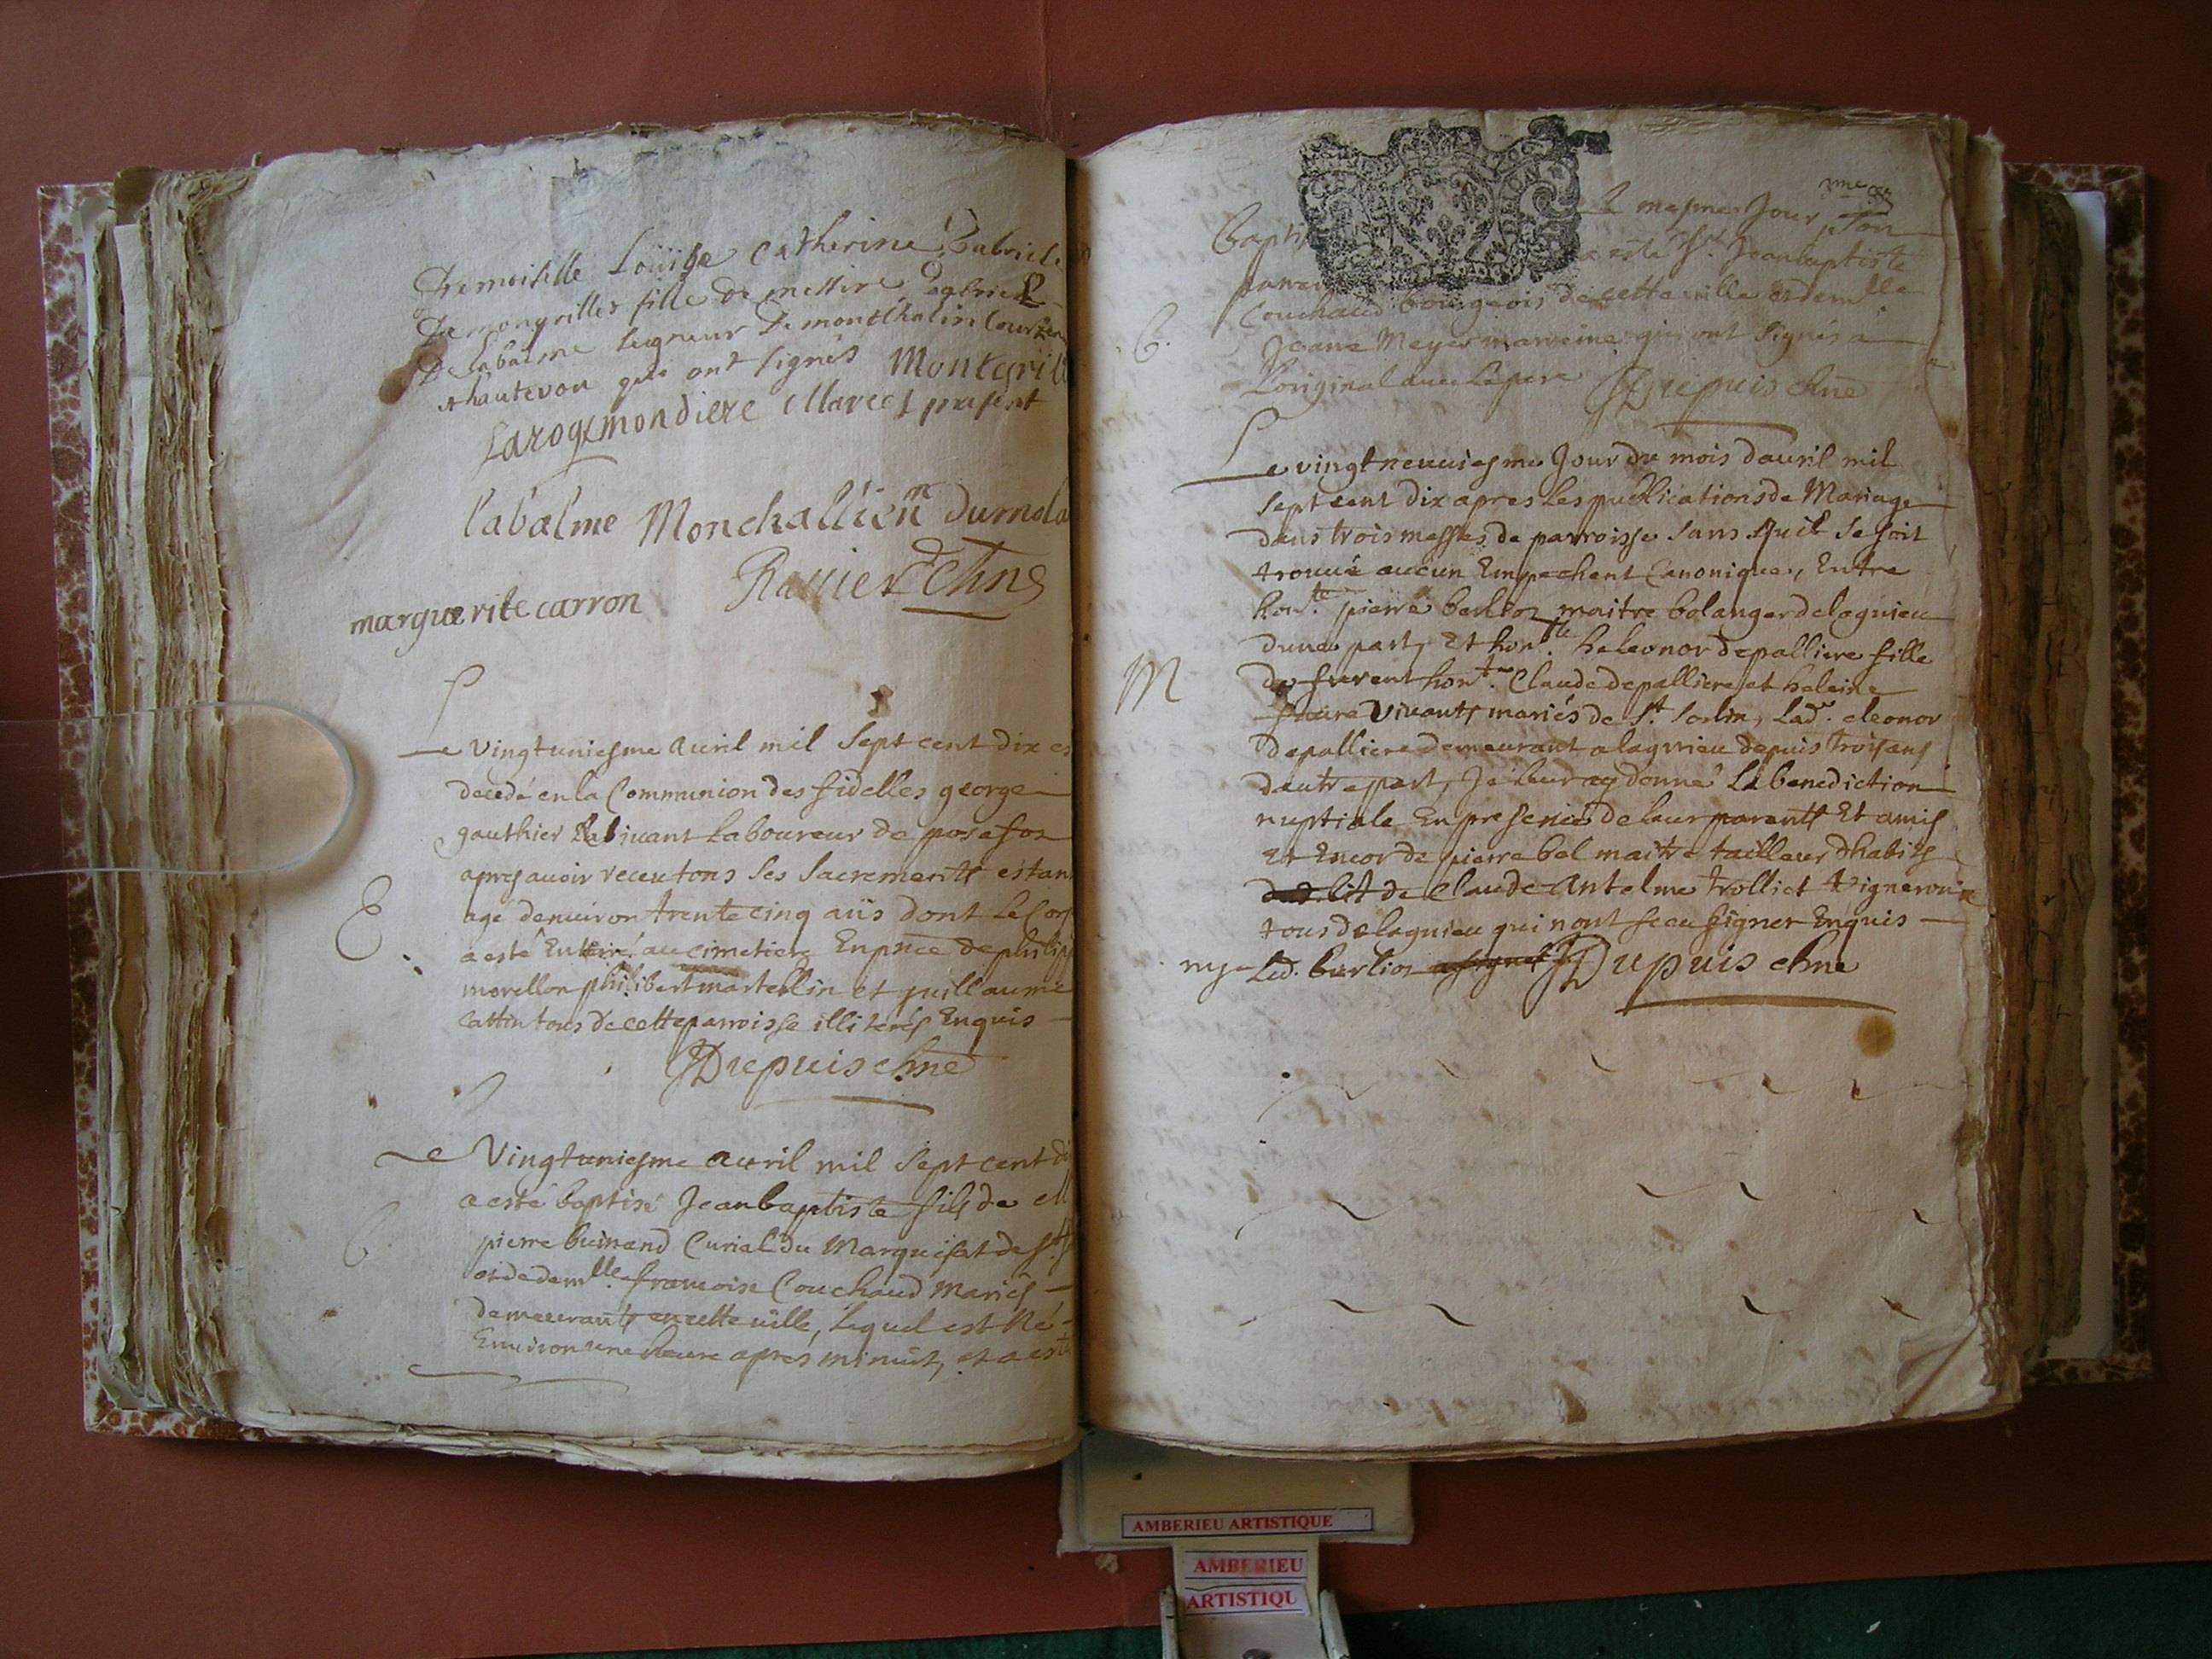 Dremoiselle Louïse Catherine Gabriele
De mongrillet fille de messire Gabriel
De labalme seigneur De montchalin
& hautevou qui ont signés Montgrill
Larogemondiere Marest present
labalme Monchallien Dumola
Ravier Chne
marguerite carron
Le vingtuniesme Avril mil sept cent dix es
decedé en la Communion des fidelles george
gauthier Vivant Laboureur de posafoz
apres avoir receu tous ses Sacrements estan
E
agé denuiron trente cinq ans dont le Cors
a esté Enterré au cimetiere En pnce de philip
morellon philibert martellin et guillaume
Cattin tous de cette parroisse illiterés Enquis
Dupuis chne
Le Vingtuniesme auril mil sept cent di
a esté baptisé Jean baptiste fils de M
B.
pierre buinand Curial du Marquisat de St S
et de demlle francoise Couchaud Mariés
demeurants en cette uille, lequel est Né
Enuiron une heure apres minuit, et a esté
Bapti mesme Jour, son
parrein a esté Sr. Jean baptiste
Couchaud bourgeois de cette uille et demlle
B.
Jeane Meyer marreine qui ont signés a
Loriginal auec Le pere Dupuis chne
Le vingtneuuiesme Jour du mois dauril mil
sept cent dix apres les publications de Mariage
dans trois messes de parroisse sans qu il se soit
trouué aucun Empechent Canonique, Entre
honte. pierre berlioz maitre bolanger de lagnieu
dune part, Et honte. heleonor depalliere fille
M
de furent honte. Claude depalliere et helaine
faure Vivants mariés de St. Sorlin, lade. eleonor
depalliere demeurant a lagnieu depuis trois ans
dautre part, Je leur ay donné La benediction
nuptiale En presence de leur parents Et amis
et Encor de pierre bel maitre tailleur dhabits
de Claude Antelme trolliet Vigneron
tous de lagnieu qui nont sceu signer Enquis
ny Led. berlioz a signé Dupuis chne
AMBERIEU ARTISTIQUE
AMBERIEU
ARTISTIQU